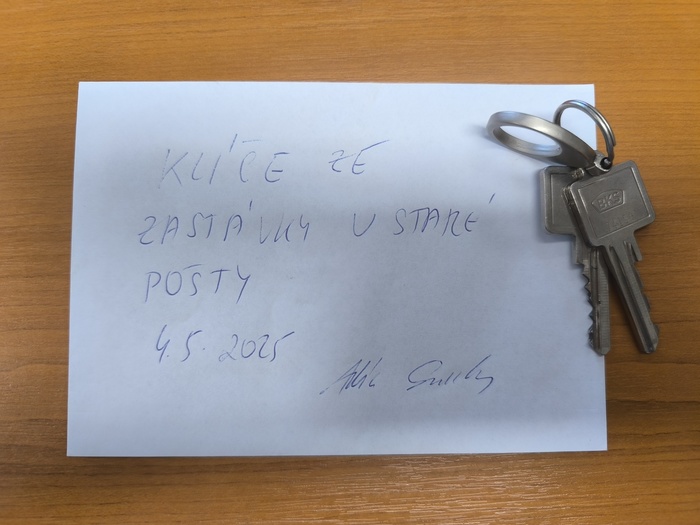 KLÍČE ZE
ZASTÁVKY U STARÉ
POŠTY
4.5.2025
BKS